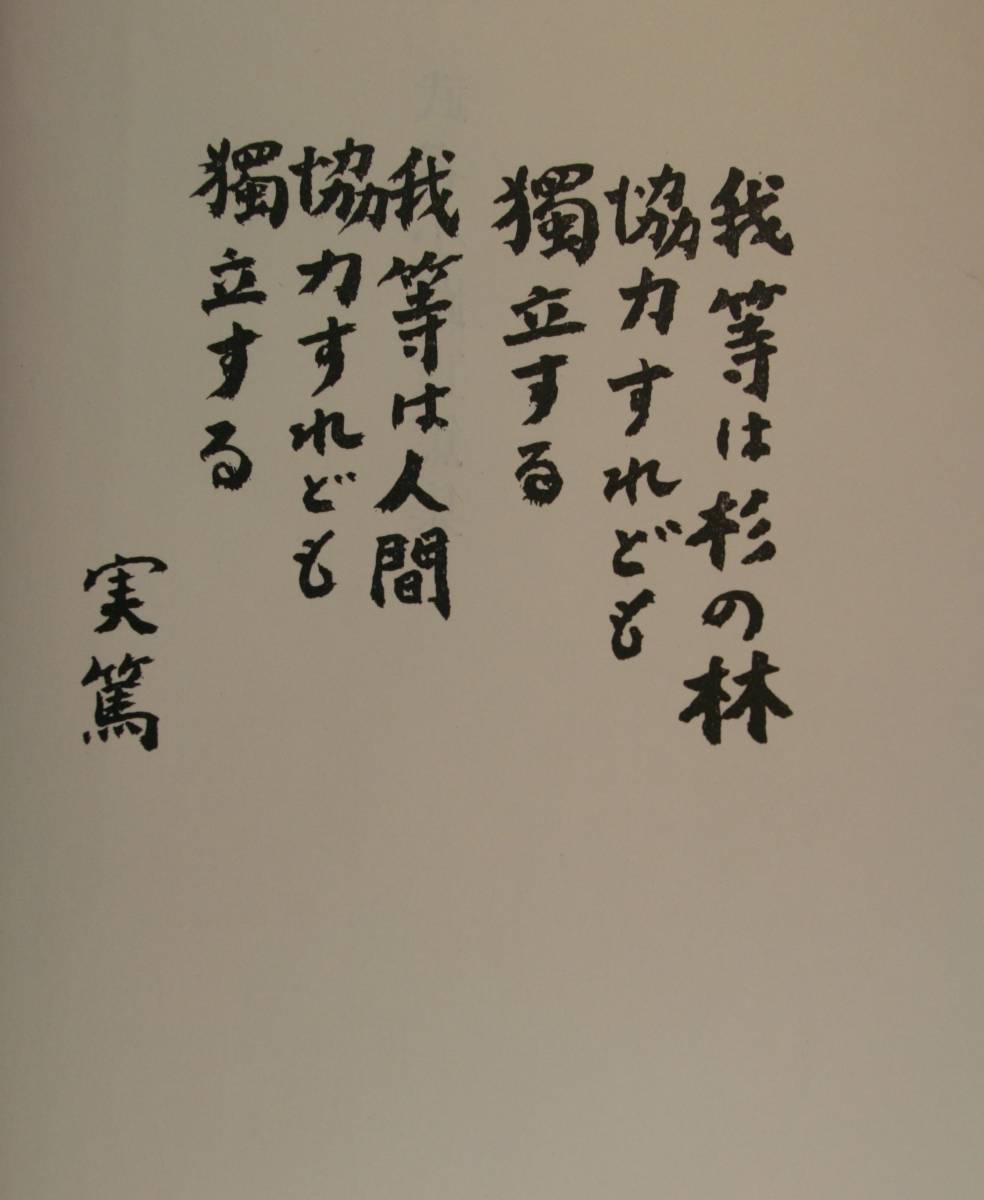 我等は杉の林
協力すれども
獨立する
我等は人間
協力すれども
獨立する
実篤